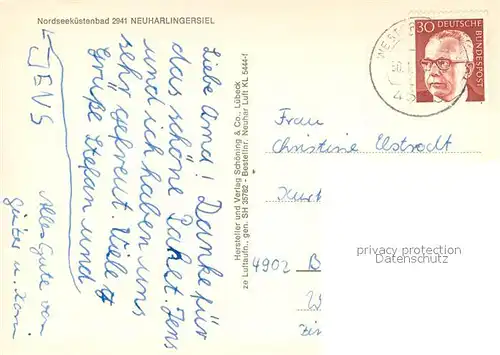 Nordseeküstenbad 2941 NEUHARLINGERSIEL
Liebe Oma! Danke für
das schöne Paket. Jens
und ich haben uns
sehr gefreut. Viele
Grüße Stefan und
JENS
Alles Gute von
Hersteller und Verlag Schöning & Co., Lübeck
ze Luftaufn., gen. SH 35782 - Bestellnr. Neuhar Luft KL 5444-1
30 DEUTSCHE
BUNDESPOST
Frau
Christine Elstrodt
Kurt
4902 B
privacy protection
Datenschutz